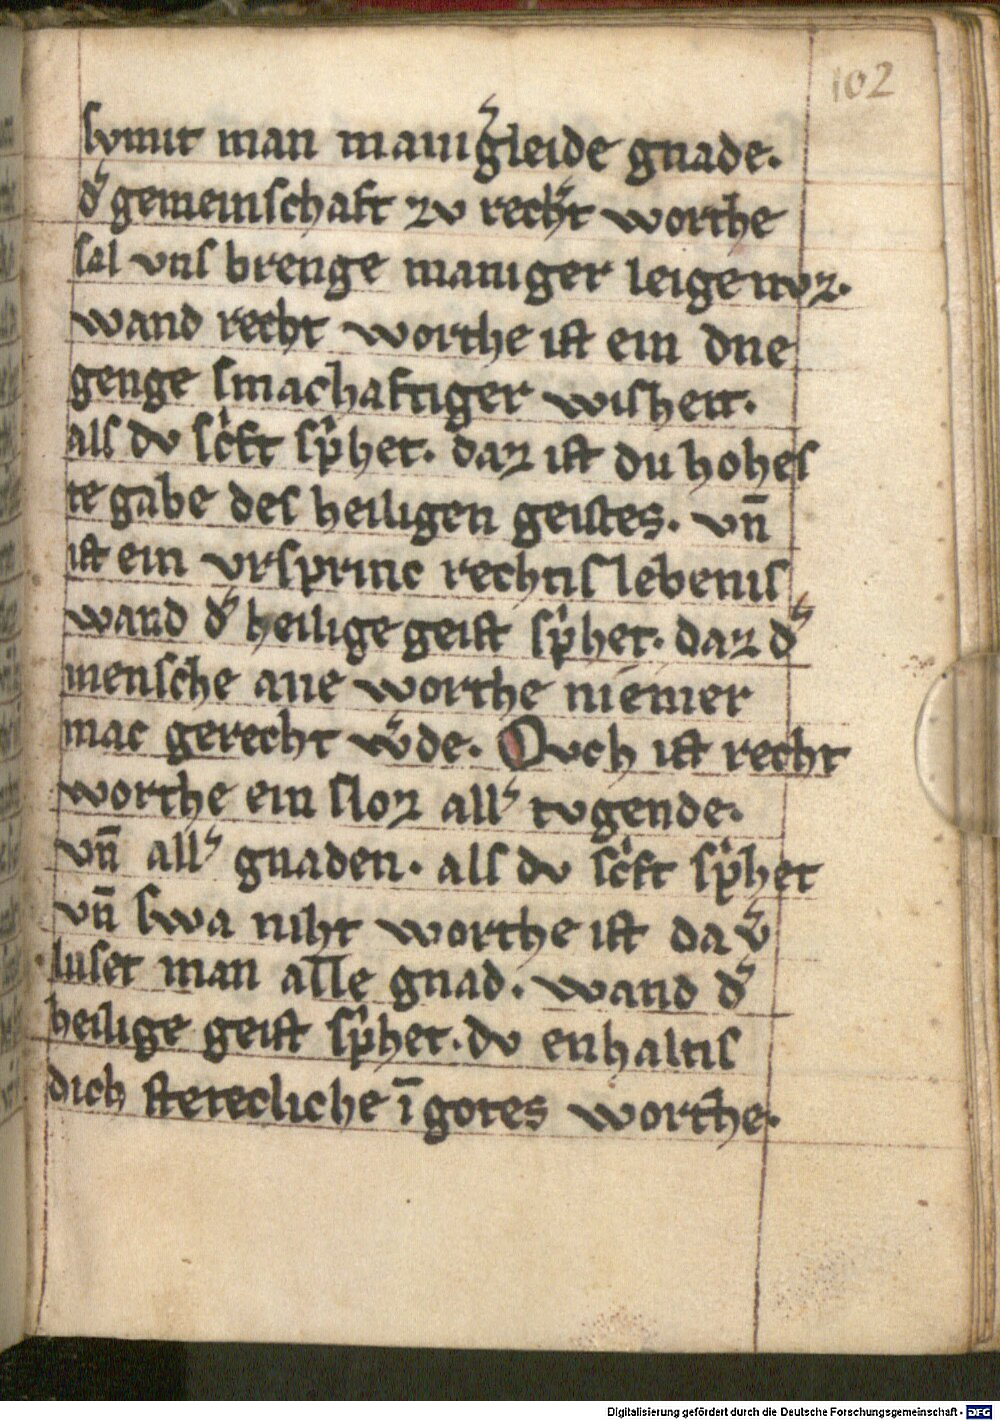 102
sumit man manig͛leide gnade.
d͛ gemeinschaft zv rech͛t worthe
sal vns brenge maniger leige nvz.
wand recht worthe ist ein dne
genge smachaftiger wisheit.
als dv scͥft spͥchet. daz ist du hohes
te gabe des heiligen geistes. vn̄
ist ein vrsprinc rechtis lebenis
wand d͛ heilige geist spͥchet. daz d͛
mensche ane worthe niemer
mac gerecht w͛de. Ovch ist recht
worthe ein sloz all͛ tvgende.
vn̄ all͛ gnaden. als dv scͥft spͥchet
vn̄ swa niht worthe ist da v͛
luset man alle gnad. wand d͛
heilige geist spͥchet. dv enhaltis
dich sterecliche ī gotes worthe.
Digitalisierung gefördert durch die Deutsche Forschungsgemeinschaft - DFG